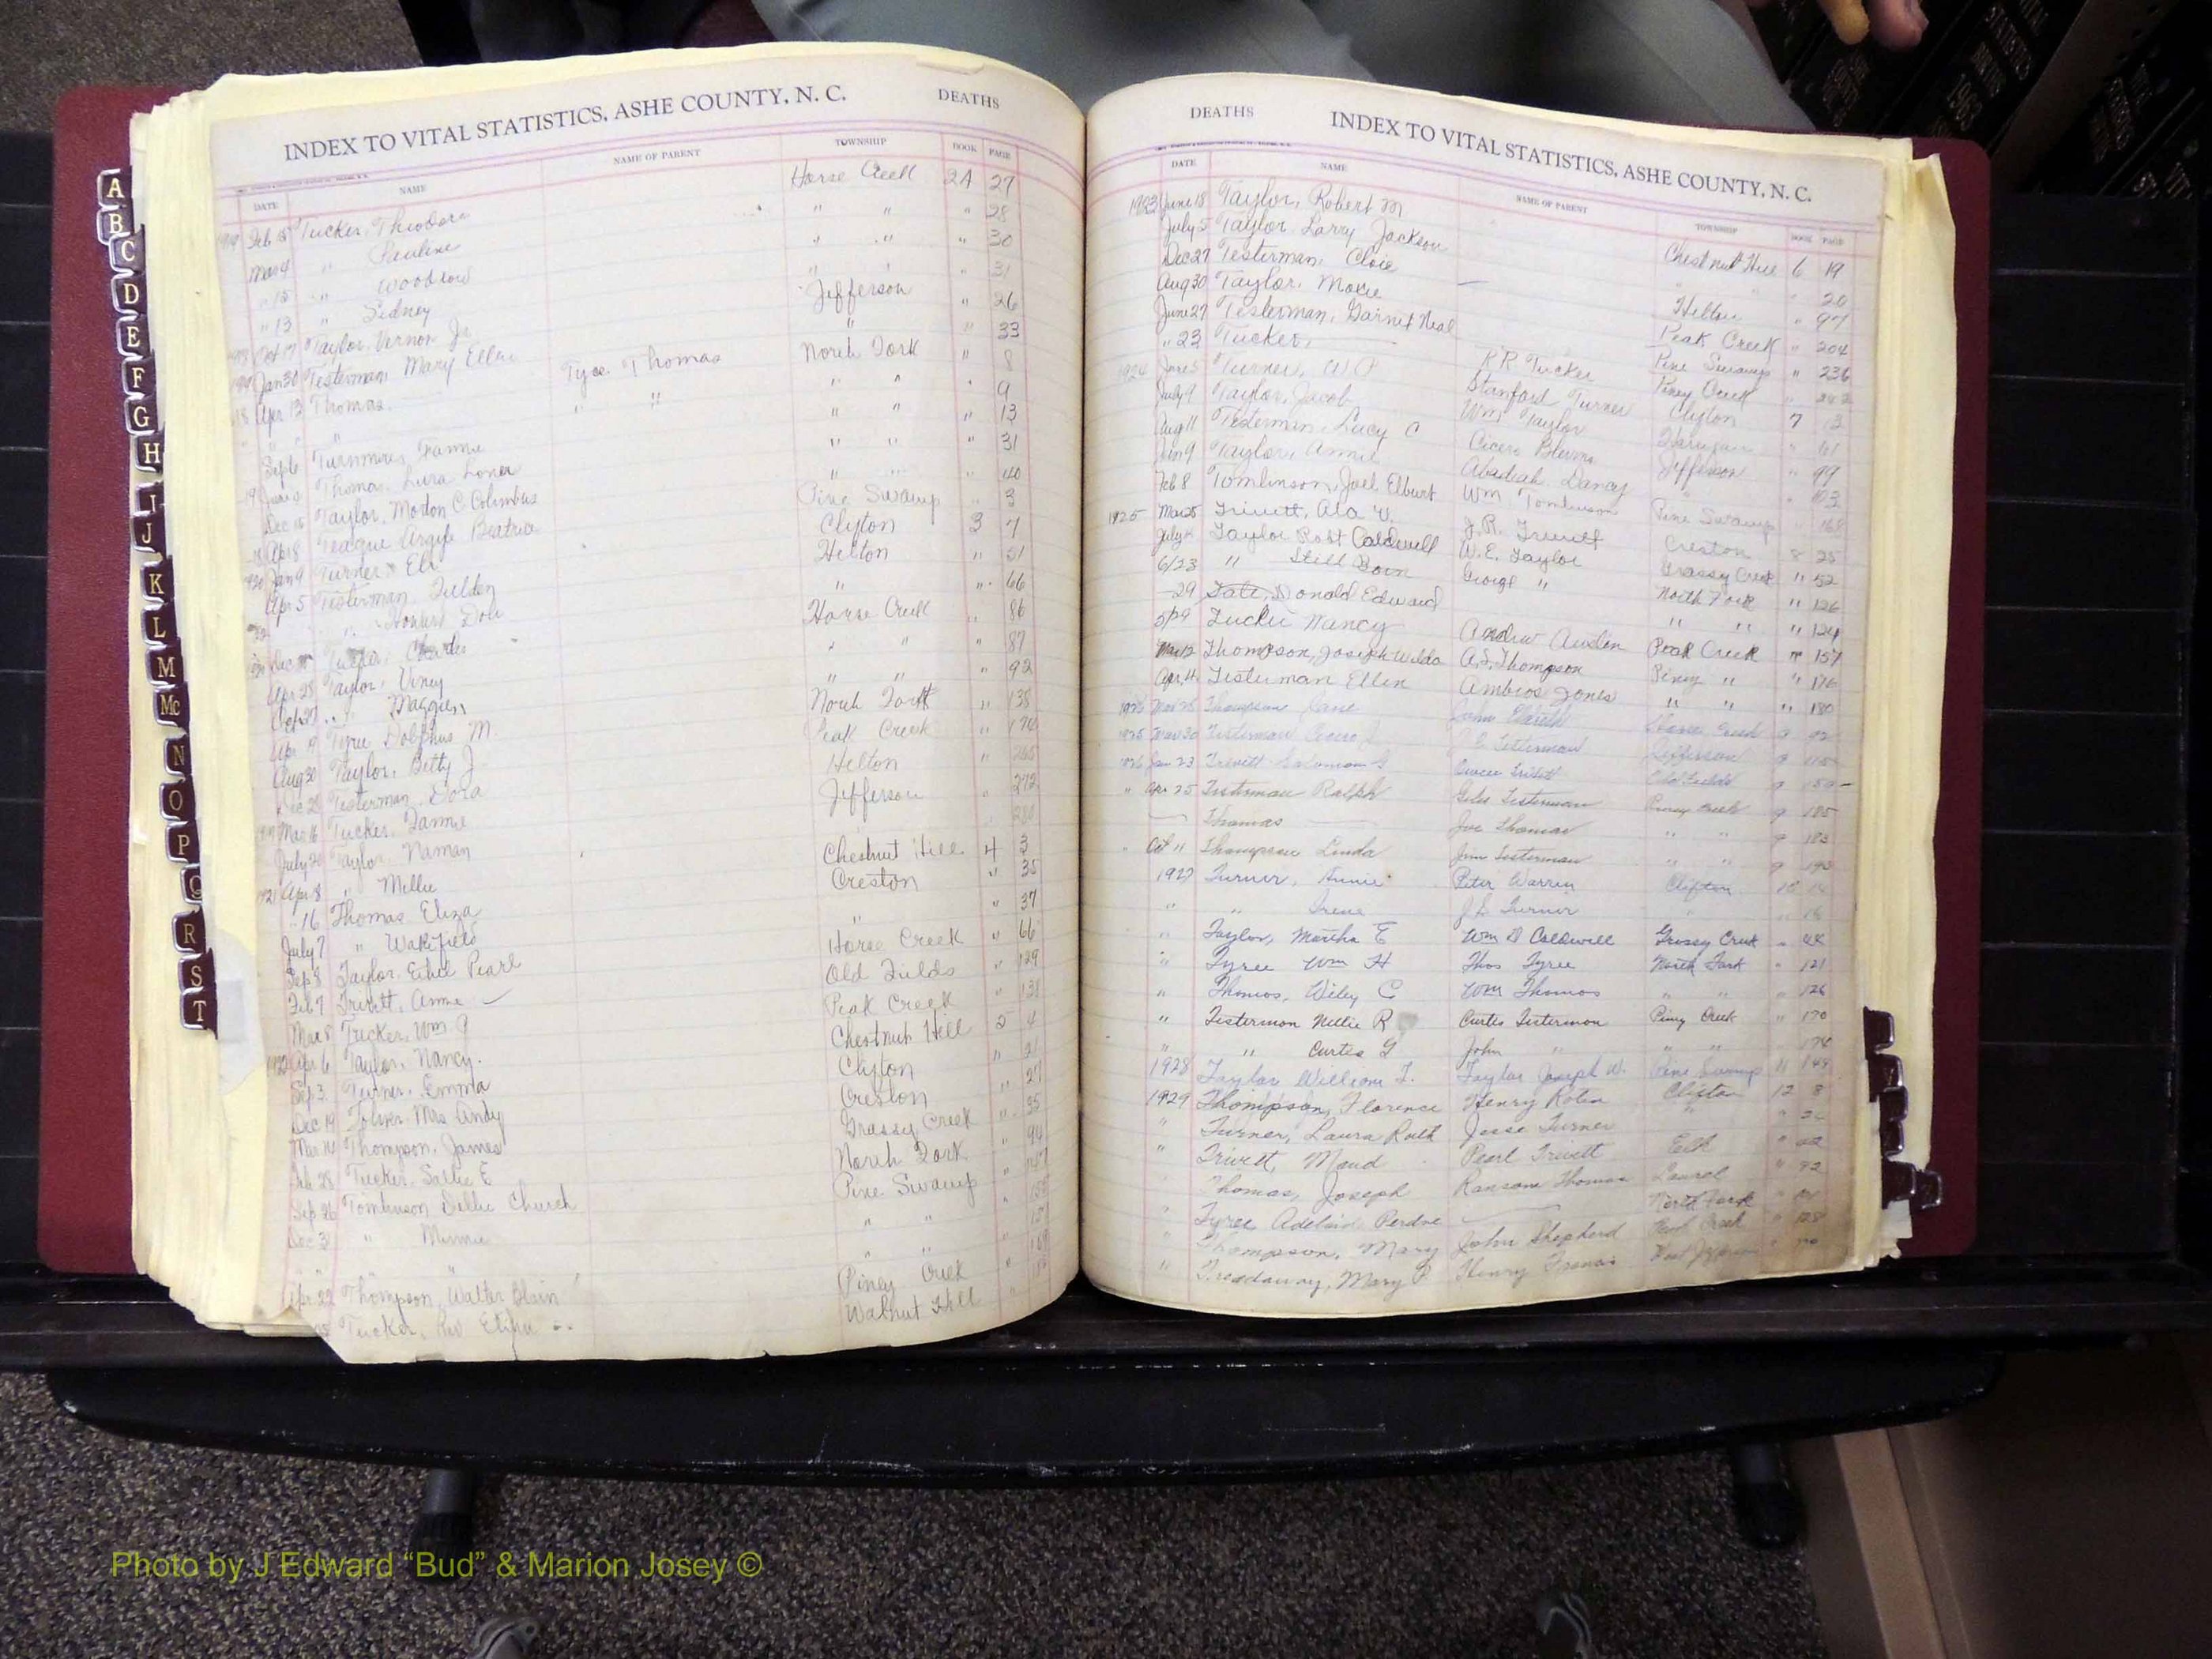 INDEX TO VITAL STATISTICS, ASHE COUNTY, N. C. DEATHS
DATE NAME NAME OF PARENT TOWNSHIP BOOK PAGE
Feb 15 Tucker, Theodore Horse Creek 2A 27
Mar 4 " Pauline " " " 28
" 15 " Woodrow " " " 30
" 13 " Sidney " " " 31
Oct 17 Taylor, Vernon Jr Jefferson " 26
Jan 30 Testerman, Mary Ellen " " 33
18 Apr 13 Thomas Tyce Thomas North Fork " 8
" " " " " " " 9
Sep 6 Turnmire, Fannie " " " 13
Thomas, Lura Lonea " " " 31
Dec 15 Taylor, Morton C Columbus " " 40
Apr 8 Teague Argyle Beatrice Pine Swamp " 3
1920 Jan 9 Turner, Eli Clifton 3 7
Apr 5 Testerman Tilden Helton " 51
" Howard Don " " 66
Tucker, Charles Horse Creek " 86
Apr 28 Taylor, Viney " " " 87
" Maggie " " " 92
Apr 9 Tyree Dolphus M. North Fork " 138
Aug 30 Taylor, Betty J Peak Creek " 170
Dec 28 Testerman, Dora Helton " 265
Mar 16 Tucker, Fannie Jefferson " 272
July 20 Taylor, Naman
1921 Apr 8 " Millie Chestnut Hill 4 3
" 16 Thomas Eliza Creston " 35
July 7 " Wakefield " " 37
Sep 8 Taylor, Ethel Pearl Horse Creek " 66
Feb 7 Trivett, Annie Old Fields " 129
Mar 8 Tucker, Wm J Peak Creek " 131
1922 Apr 6 Taylor, Nancy. Chestnut Hill 5 4
Sep 3 Turner, Emma Clifton " 21
Dec 14 Toliver, Mrs Andy Creston " 27
Mar 14 Thompson, James Grassy Creek " 35
Feb 28 Tucker, Sallie E North Fork " 94
Sep 26 Tomlinson Dollie Church Pine Swamp
Dec 3 " Minnie " "
Apr 22 Thompson, Walter Piney Creek
Tucker, Rev Walnut Hill
DEATHS INDEX TO VITAL STATISTICS, ASHE COUNTY, N. C.
DATE NAME NAME OF PARENT TOWNSHIP BOOK PAGE
1923 June 18 Taylor, Robert M Chestnut Hill 6 19
July 5 Taylor, Larry Jackson " 20
Dec 27 Testerman, Cloie Helton " 97
Aug 30 Taylor, Moxie Peak Creek " 204
June 27 Testerman, Garnet Neal Pine Swamp " 236
" 23 Tucker, R R Tucker Piney Creek
1924 June 5 Turner, W P Stanford Turner Clifton 7
July 9 Taylor, Jacob Wm Taylor
Aug 11 Testerman, Lucy C Cicero Blevins Jefferson " 99
Jan 9 Taylor, Annie Abadiah Dancy
Feb 8 Tomlinson, Joel Elburt Wm Tomlinson Pine Swamp 168
1925 Mar 25 Trivett, Ala V. J.R. Trivett Creston 8 25
July 2 Taylor Robt Caldwell W.E. Taylor Grassy Creek " 52
6/23 " Still Born George " North Fork " 126
29 Tate, Donald Edward " " " 124
5/29 Tucker Nancy Andrew Austen Peak Creek " 157
Mar 12 Thompson, Joseph Wilda A.S. Thompson Piney " " 176
Apr 4 Testerman Ellen Ambros Jones " " " 180
Thompson Jane John Horse Creek 9
1925 Mar 30 Testerman Cicero J Testerman Jefferson 9
1926 Jan 23 Trivett Solomon G Trivett Old Fields 9
" Apr 25 Testerman Ralph Giles Testerman Piney Creek 9 185
Thomas Joe Thomas " " 9 183
" Oct " Thompson Linda Jim Testerman " " 9
1927 Turner, Annie Peter Warren Clifton 10 14
" " Irene J.S. Turner
" Taylor, Martha E Wm D Caldwell Grassy Creek "
" Tyree Wm H Thos Tyree North Fork " 121
" Thomas, Wiley C Wm Thomas " " " 126
" Testerman Nellie R Curtis Testerman Piney Creek " 170
" " Curtis G John " " " 174
1928 Taylor William F. Taylor Joseph W. Pine Swamp 11 149
1929 Thompson, Florence Henry Roten Clifton 12 8
" Turner, Laura Ruth Jesse Turner "
" Trivett, Maud Pearl Trivett Elk
" Thomas, Joseph Ransom Thomas Laurel " 92
" Tyree Adelaid Perdue North Fork
" Thompson, Mary John Shepherd Peak Creek
" Treadaway, Mary P Henry Francis West Jefferson
A
B
C
D
E
F
G
H
I
J
K
L
M
Mc
N
O
P
Q
R
S
T
Photo by J Edward “Bud” & Marion Josey ©